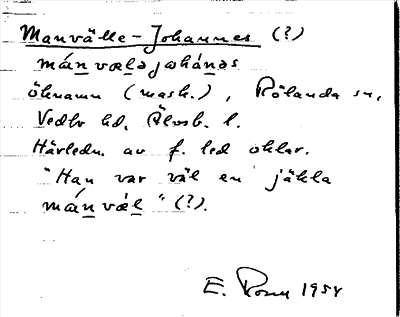 Manvälle-Johannes (?)
mán vælə jəhánəs
öknamn (mask.), Rölanda sn,
Vedbo hd, Älvsb. l.
Härledn. av f. led oklar.
"Han var väl en jäkla
mán væl" (?).
E. 1954